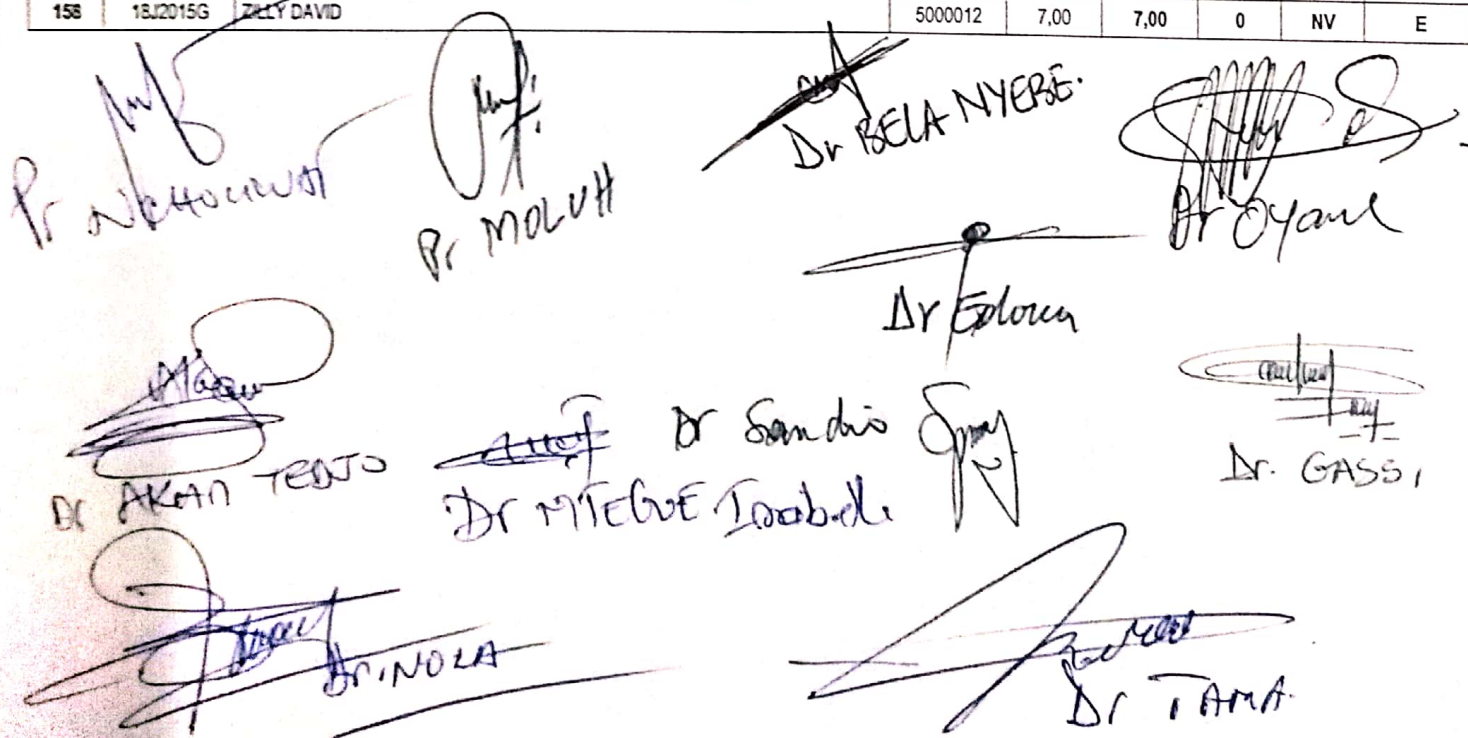 158 18J2015G ZILLY DAVID 5000012 7,00 7,00 0 NV E
Pr NCHOUWAT
Pr MOLUH
Dr BELA NYEBE.
Dr Oyane
Dr
Dr AKAN TEDJO
Dr Sandio
Dr MTEGUE Isabelle
Dr. GASSI
Dr. NOLA
Dr TAMA.